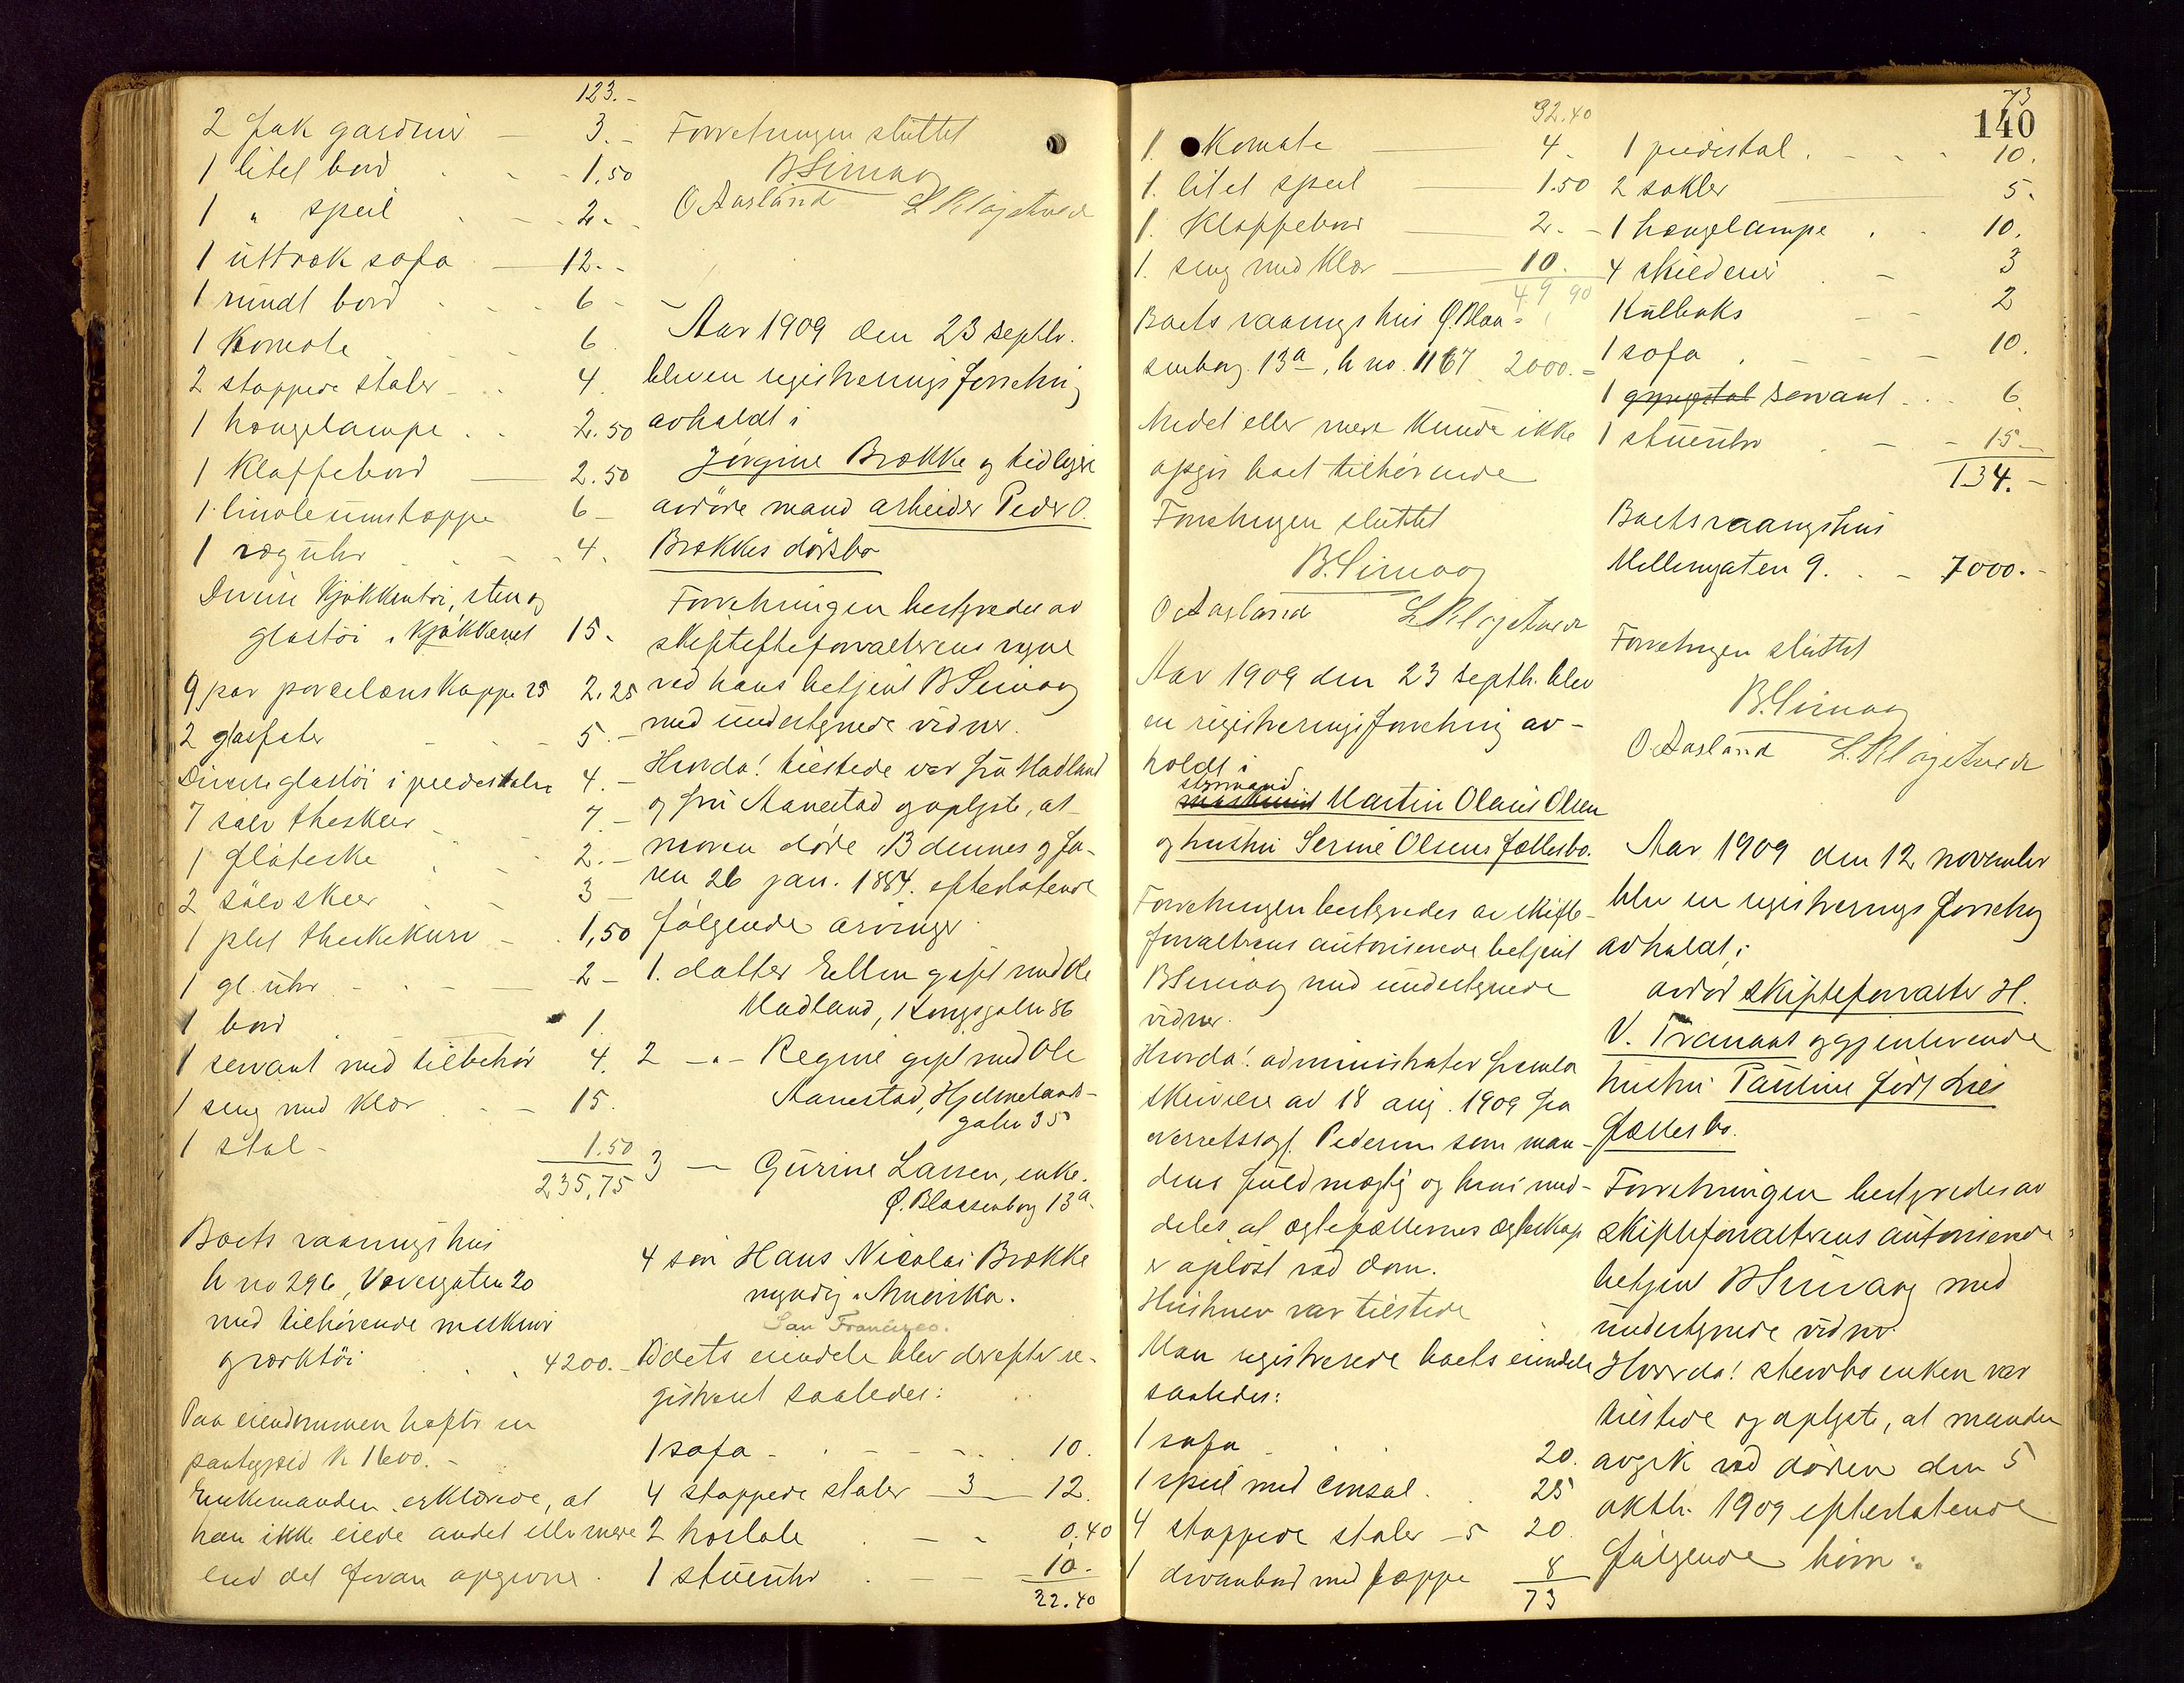 123.-
2 fak gardiner - 3.-
1 litet bord - 1,50
1 " speil - 2.-
1 uttræk sofa - 12.-
1 rundt bord - 6 -
1 Komode - 6
2 stoppede stoler - 4.
1 hængelampe . . 2.50
1 Klaffebord - 2.50
1 linoleumsteppe 6 -
1 væguhr - 4.
Diverse kjøkkentøi, sten og
glastøi i kjøkkenet 15.-
9 par porcelæns Kopper 25 2.25
2 glasfater - 5.-
Diverse glastøi i piedestalen 4.-
7 sølv theskeer - 7.-
1 fløteske - 2.-
2 sølvskeer - 3 -
1 plet thekekurv - 1,50
1 gl. uhr - 2 -
1 bord - 1.
1 servant med tilbehør 4.
1 seng med klær - 15.
1 stol - 1.50
235,75
Boets vaaningshus
h no 296, Vævergaten 20
med tilhørende maskiner
og værktøi . . 4200.-
Paa eiendommen hefter en
pantegjæld k 1600.-
Enkemanden erklærede, at
han ikke eiede andet eller mere
end det foran opgivne.
Forretningen sluttet
BSimoog
O Aasland L Klagetvedt
Aar 1909 den 23 septbr.
blev en registreringsforretning
avholdt i
Jørgine Brække og tidligere
avdøde mand arbeider Peder O.
Brækkes dødsbo
Forretningen bestyredes av
skifteforvalterens vegne
ved hans betjent BSimoog
med undertegnede vidner.
Hvorda! tilstede var fru Madland
og fru Aanestad og oplyste, at
moren døde 13 dennes og fa-
ren 26 jan. 1884. efterlatende
følgende arvinger
1. datter Ellen gift med Ole
Madland, Kongsgaten 86
2 -"- Regine gift med Ole
Aanestad, Hjelmelands-
gaten 35
3 - Gurine Larsen, enke.
Ø. Blaasenborg 13a.
4 søn Hans Nicolai Brække
myndig i Amerika.
San Francisco.
Boets eiendele blev derefter re-
gistreret saaledes:
1 sofa - 10.
4 stoppede stoler - 3 - 12.
2 - 0,40
1 stueuhr - 10.-
32.40
32.40
1. Komode - 4.
1. litet speil - 1.50
1. Klaffebord - 2.-
1. seng med Klær - 10.
49 90
Boets vaaningshus Ø. Blaa-
senborg 13a, h no. 1167 2000.-
Andet eller mere kunde ikke
opgis boet tilhørende
Forretningen sluttet
B.Simoog
O Aasland L Klagetvedt
Aar 1909 den 23 septb. blev
en registreringsforretning av-
holdt i
styrmand
maskinist Martin Olaus Olsen
og hustru Serine Olsens fællesbo.
Forretningen bestyredes av skifte-
forvalterens autoriserede betjent
BSimoog med undertegnede
vidner.
Hvorda! administrator fremla
skrivelse av 18 aug. 1909 fra
overretssagf. Pedersen som man-
dens fuldmægtig og hvori med-
deles, at ægtefællernes ægteskap
er opløst ved dom.
Hustruen var tilstede
Man registrerede boets eiendele
saaledes:
1 sofa - 20.
1 speil med consol . . 25
4 stoppede stoler - 5 20.
1 divanbord med teppe 8
73
73
140
1 piedestal . - 10.
2 sokler - 5.
1 hængelampe . . 10.
4 skilderier - 3
Kulboks - 2
1 sofa . - 10.
1 gyngestol servant . . 6
1 stueuhr - 15.-
134.-
Boets vaaningshus
Møllergaten 9. . - 7000.-
Forretningen sluttet
B.Simoog
O Aasland L. Klagetvedt
Aar 1909 den 12 november
blev en registreringsforretning
avholdt i
avdød skifteforvalter H.
V. Tranaas og gjenlevende
hustru Pauline født Lies
fællesbo.
Forretningen bestyredes av
skifteforvalterens autoriserede
betjent BSimoog med
undertegnede vidner.
Hvorda! stervbo enken var
tilstede og oplyste, at manden
avgik ved døden den 5
oktbr. 1909 efterlatende
følgende børn: